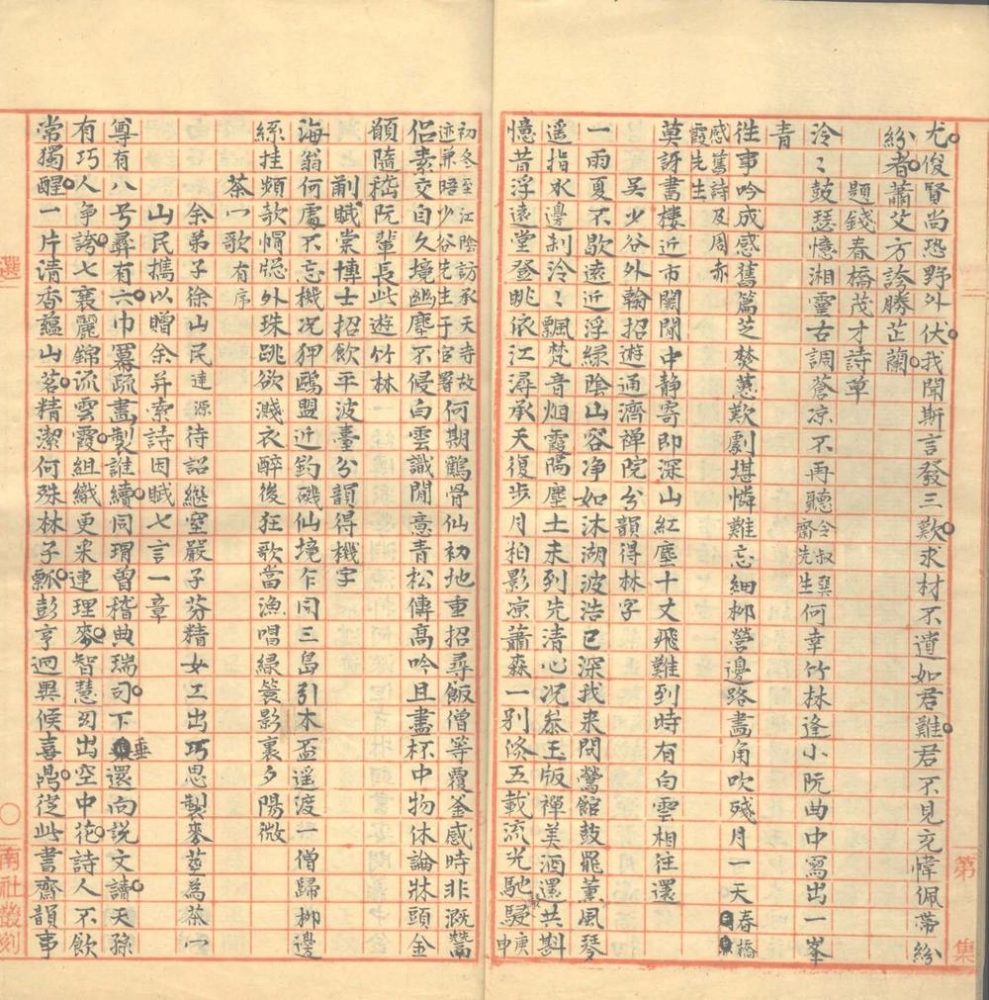 尤俊賢尚恐野外伏我聞斯言發三歎求材不遺如君難君不見充幃佩帶紛
紛者蕭艾方誇勝芷蘭
題錢春橋茂才詩草
泠〻鼓瑟憶湘靈古調蒼凉不再聽令叔巽齋先生何幸竹林逢小阮曲中寫出一峯
青
往事吟成感舊篇芝焚蕙歎劇堪憐難忘細柳營邊路畫角吹殘月一天春橋
感舊詩及周赤
霞先生
莫訝書樓近市闤閙中静寄即深山紅塵十丈飛難到時有白雲相往還
吳少谷外翰招遊通濟禅院分韻得林字
一雨夏不歇遠近浮綠陰山容净如沐湖波浩已深我来問鶯館鼓罷薰風琴
遥指水邊刹泠〻飄梵音烟霞隔塵土未到先清心况叅玉版禪美酒還共斟
憶昔浮遠堂登眺依江潯承天復步月柏影凉蕭森一别條五載流光馳駸庚申
初冬至江陰訪承天寺故
迹兼晤少谷先生于官署何期鶴骨仙初地重招尋飯僧等覆釜感時非溉鬵
侣素交自久境幽塵不侵白雲識閒意青松傳高吟且盡杯中物休論牀頭金
願隨嵇阮輩長此遊竹林
蒯賦棠博士招飲平波臺分韻得機字
海翁何處不忘機况狎鷗盟近釣磯仙境乍同三島引木盃遥渡一僧歸柳邊
絲挂頻欹帽牕外珠跳欲濺衣醉後狂歌當漁唱綠簑影裏夕陽微
茶𠆢歌有序
余弟子徐山民達源待詔繼室嚴子芬精女工出巧思製麥莖為茶𠆢
山民攜以贈余并索詩因賦七言一章
尊有八号彞有六巾冪疏畫製誰續同瑁曽稽典瑞司下垂還向説文讀天孫
有巧人争誇七襄麗錦流雲霞組織更采連理麥智慧幻出空中花詩人不飲
常獨醒一片清香藴山茗精潔何殊林子瓢彭亨迥異侯喜鼎從此書齋韻事
選
南社叢刻
第
集